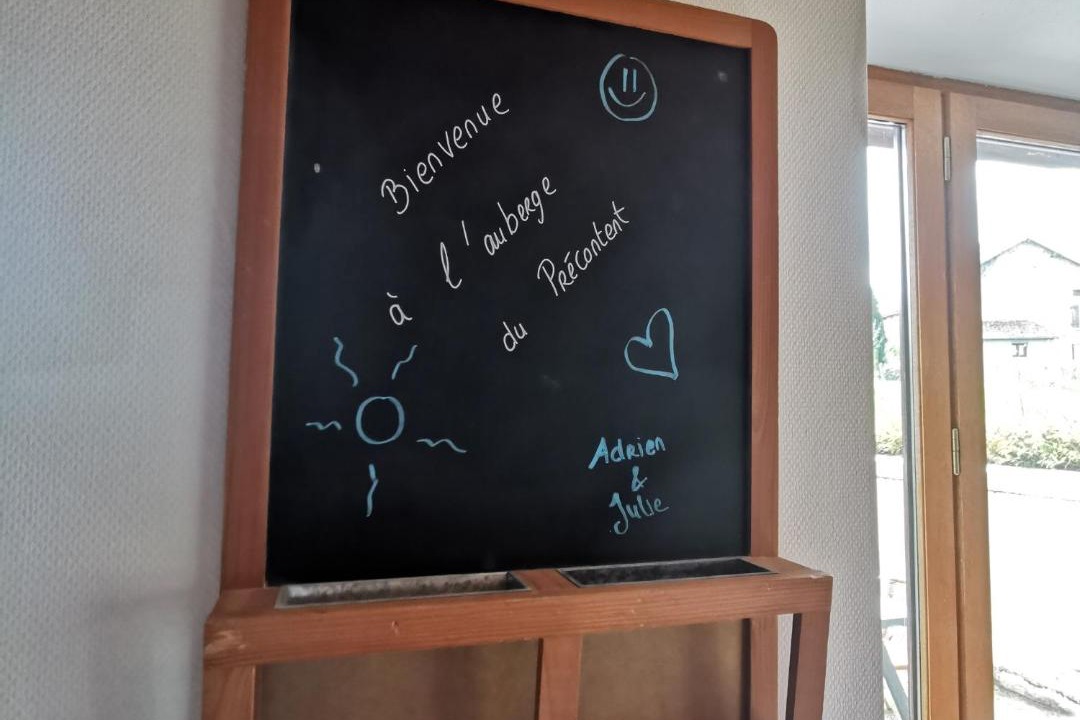 Bienvenue
à l'auberge
du Précontent
Adrien
&
Julie